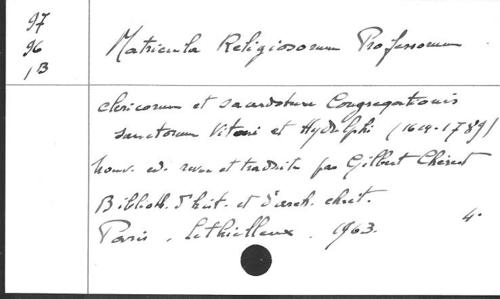 97
96
1B
Matricula Religiosorum Professorum
clericorum et sacerdotum Congregationis
sanctorum Vitoni et Hydulphi (1604-1789)
Nouv. ed. revue et traduite par Gilbert Chérest
Biblioth. d'hist. et d'arch. chret.
Paris, Lethielleux, 1963. 4°